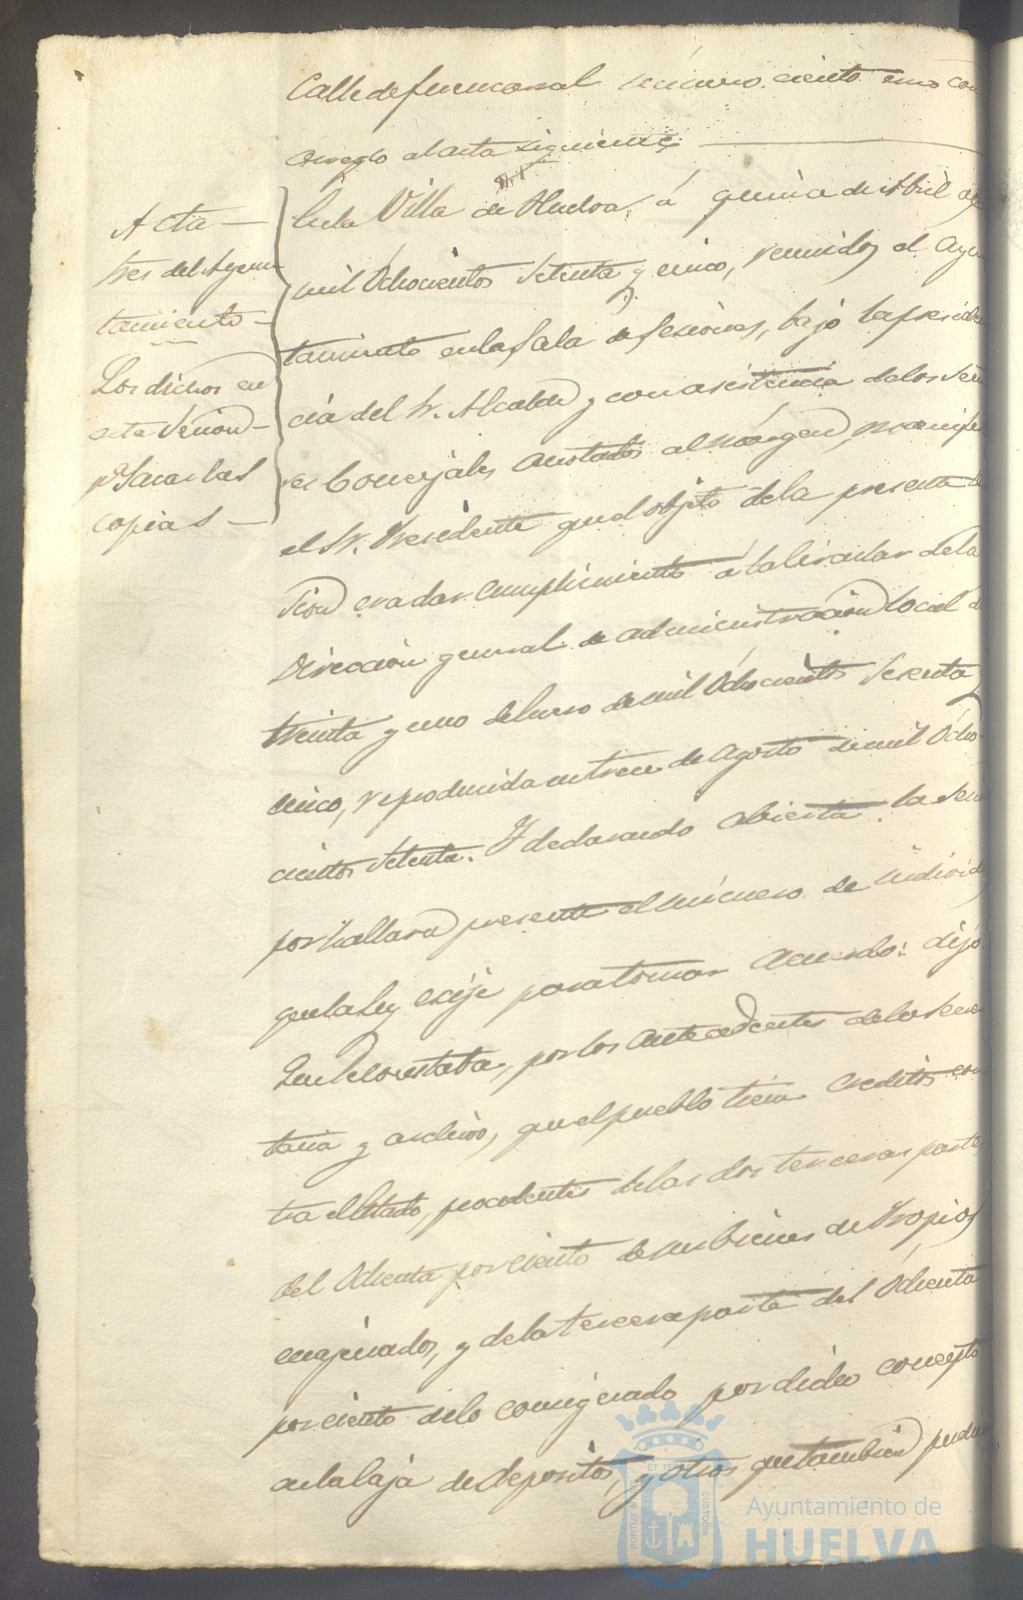 Calle de fuencarral número ciento uno con
arreglo al acta siguiente
Acta
del Ayun
tamiento
Los dichos en
esta Sesion
pª Sacar las
copias
En la Villa de Huelva, á quince de Abril de
mil Ochocientos Setenta y cinco, reunido el Ayun
tamiento en la Sala de Sesiones, bajo la presiden
cia del Sr. Alcalde y con asistencia de los Seño
res Concejales anotados al márgen,
el Sr. Presidente que el objeto de la presente Se
sion era dar cumplimiento á la Circular de la
Dirección general de administracion local de
treinta y uno de Enero de mil Ochocientos Sesenta y
cinco, reproducida en trece de Agosto de mil Ocho
cientos Setenta. Y declarando abierta la Sesion
por hallarse presente el número de individuos
que la Ley exije para tomar acuerdo: dijo
Que le constaba, por los antecedentes de la Secre
taria y archivo, que el pueblo tiene creditos con
tra el Estado, procedentes de las dos terceras partes
del Ochenta por ciento de sus bienes de Propios
enajenados, y de la tercera parte del Ochenta
por ciento de lo consignado por dicho concepto
en la Caja de depositos, y otros que tambien pudie
PORTUS MARIS ET TERRAE CUSTODIA
Ayuntamiento de
HUELVA